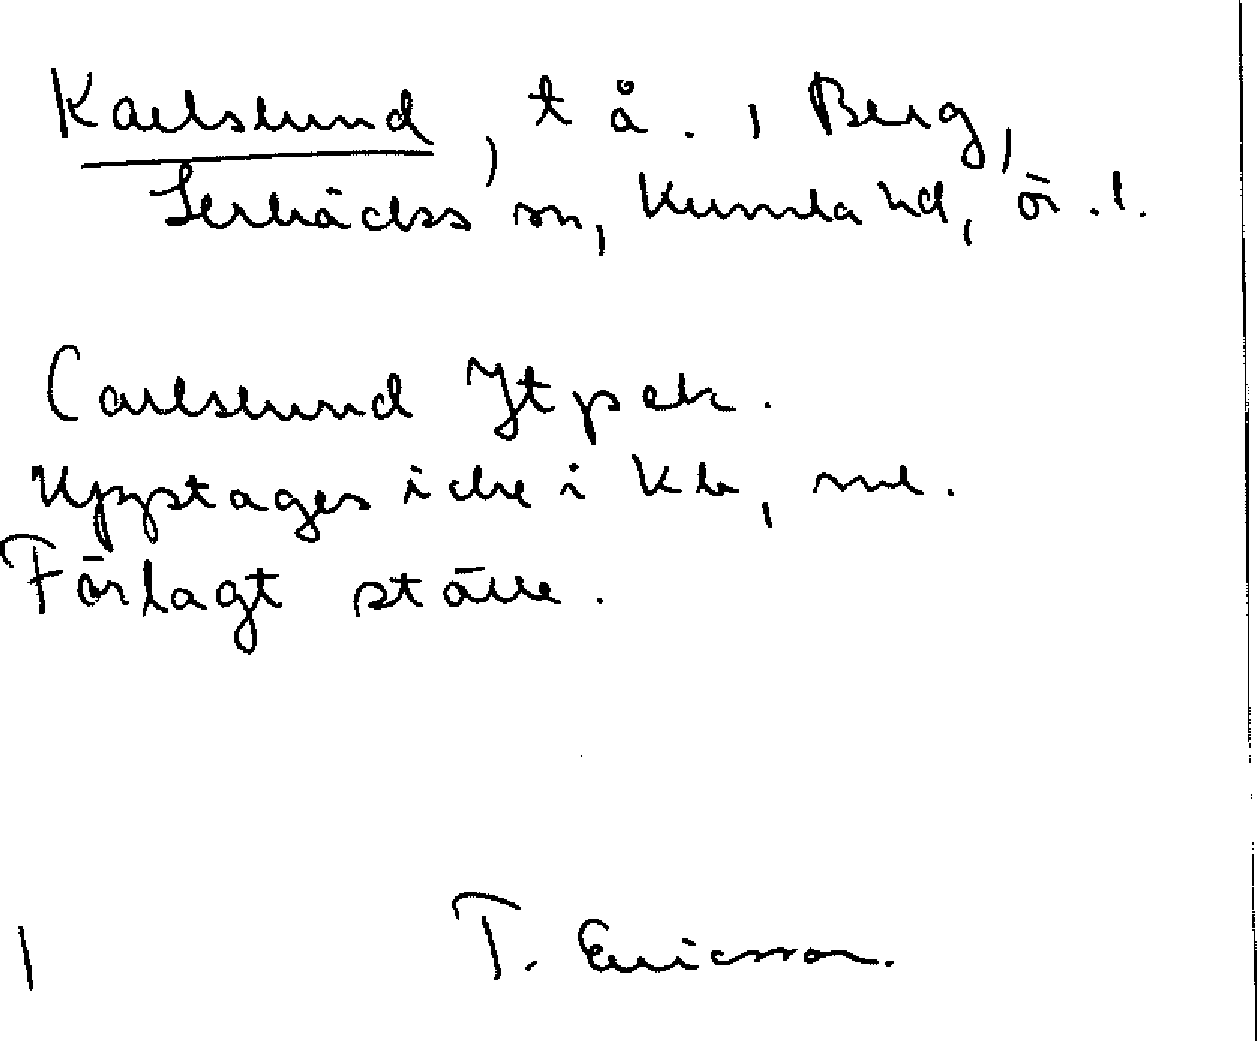 Karlslund, t å., Berg,
Lerbäcks sn, Kumla hd, ör. l.
Carlslund Jt pek.
Upptages icke i Kb, ml.
Förlagt ställe.
T. Ericsson.